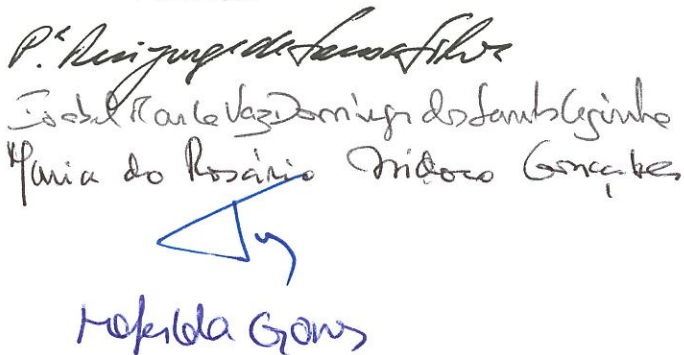 P.e Rui Jorge de Sousa Silva
Isabel Maria Vaz Domingos dos Santos
Maria do Rosário Isidoro Gonçalves
Mafalda Gomes